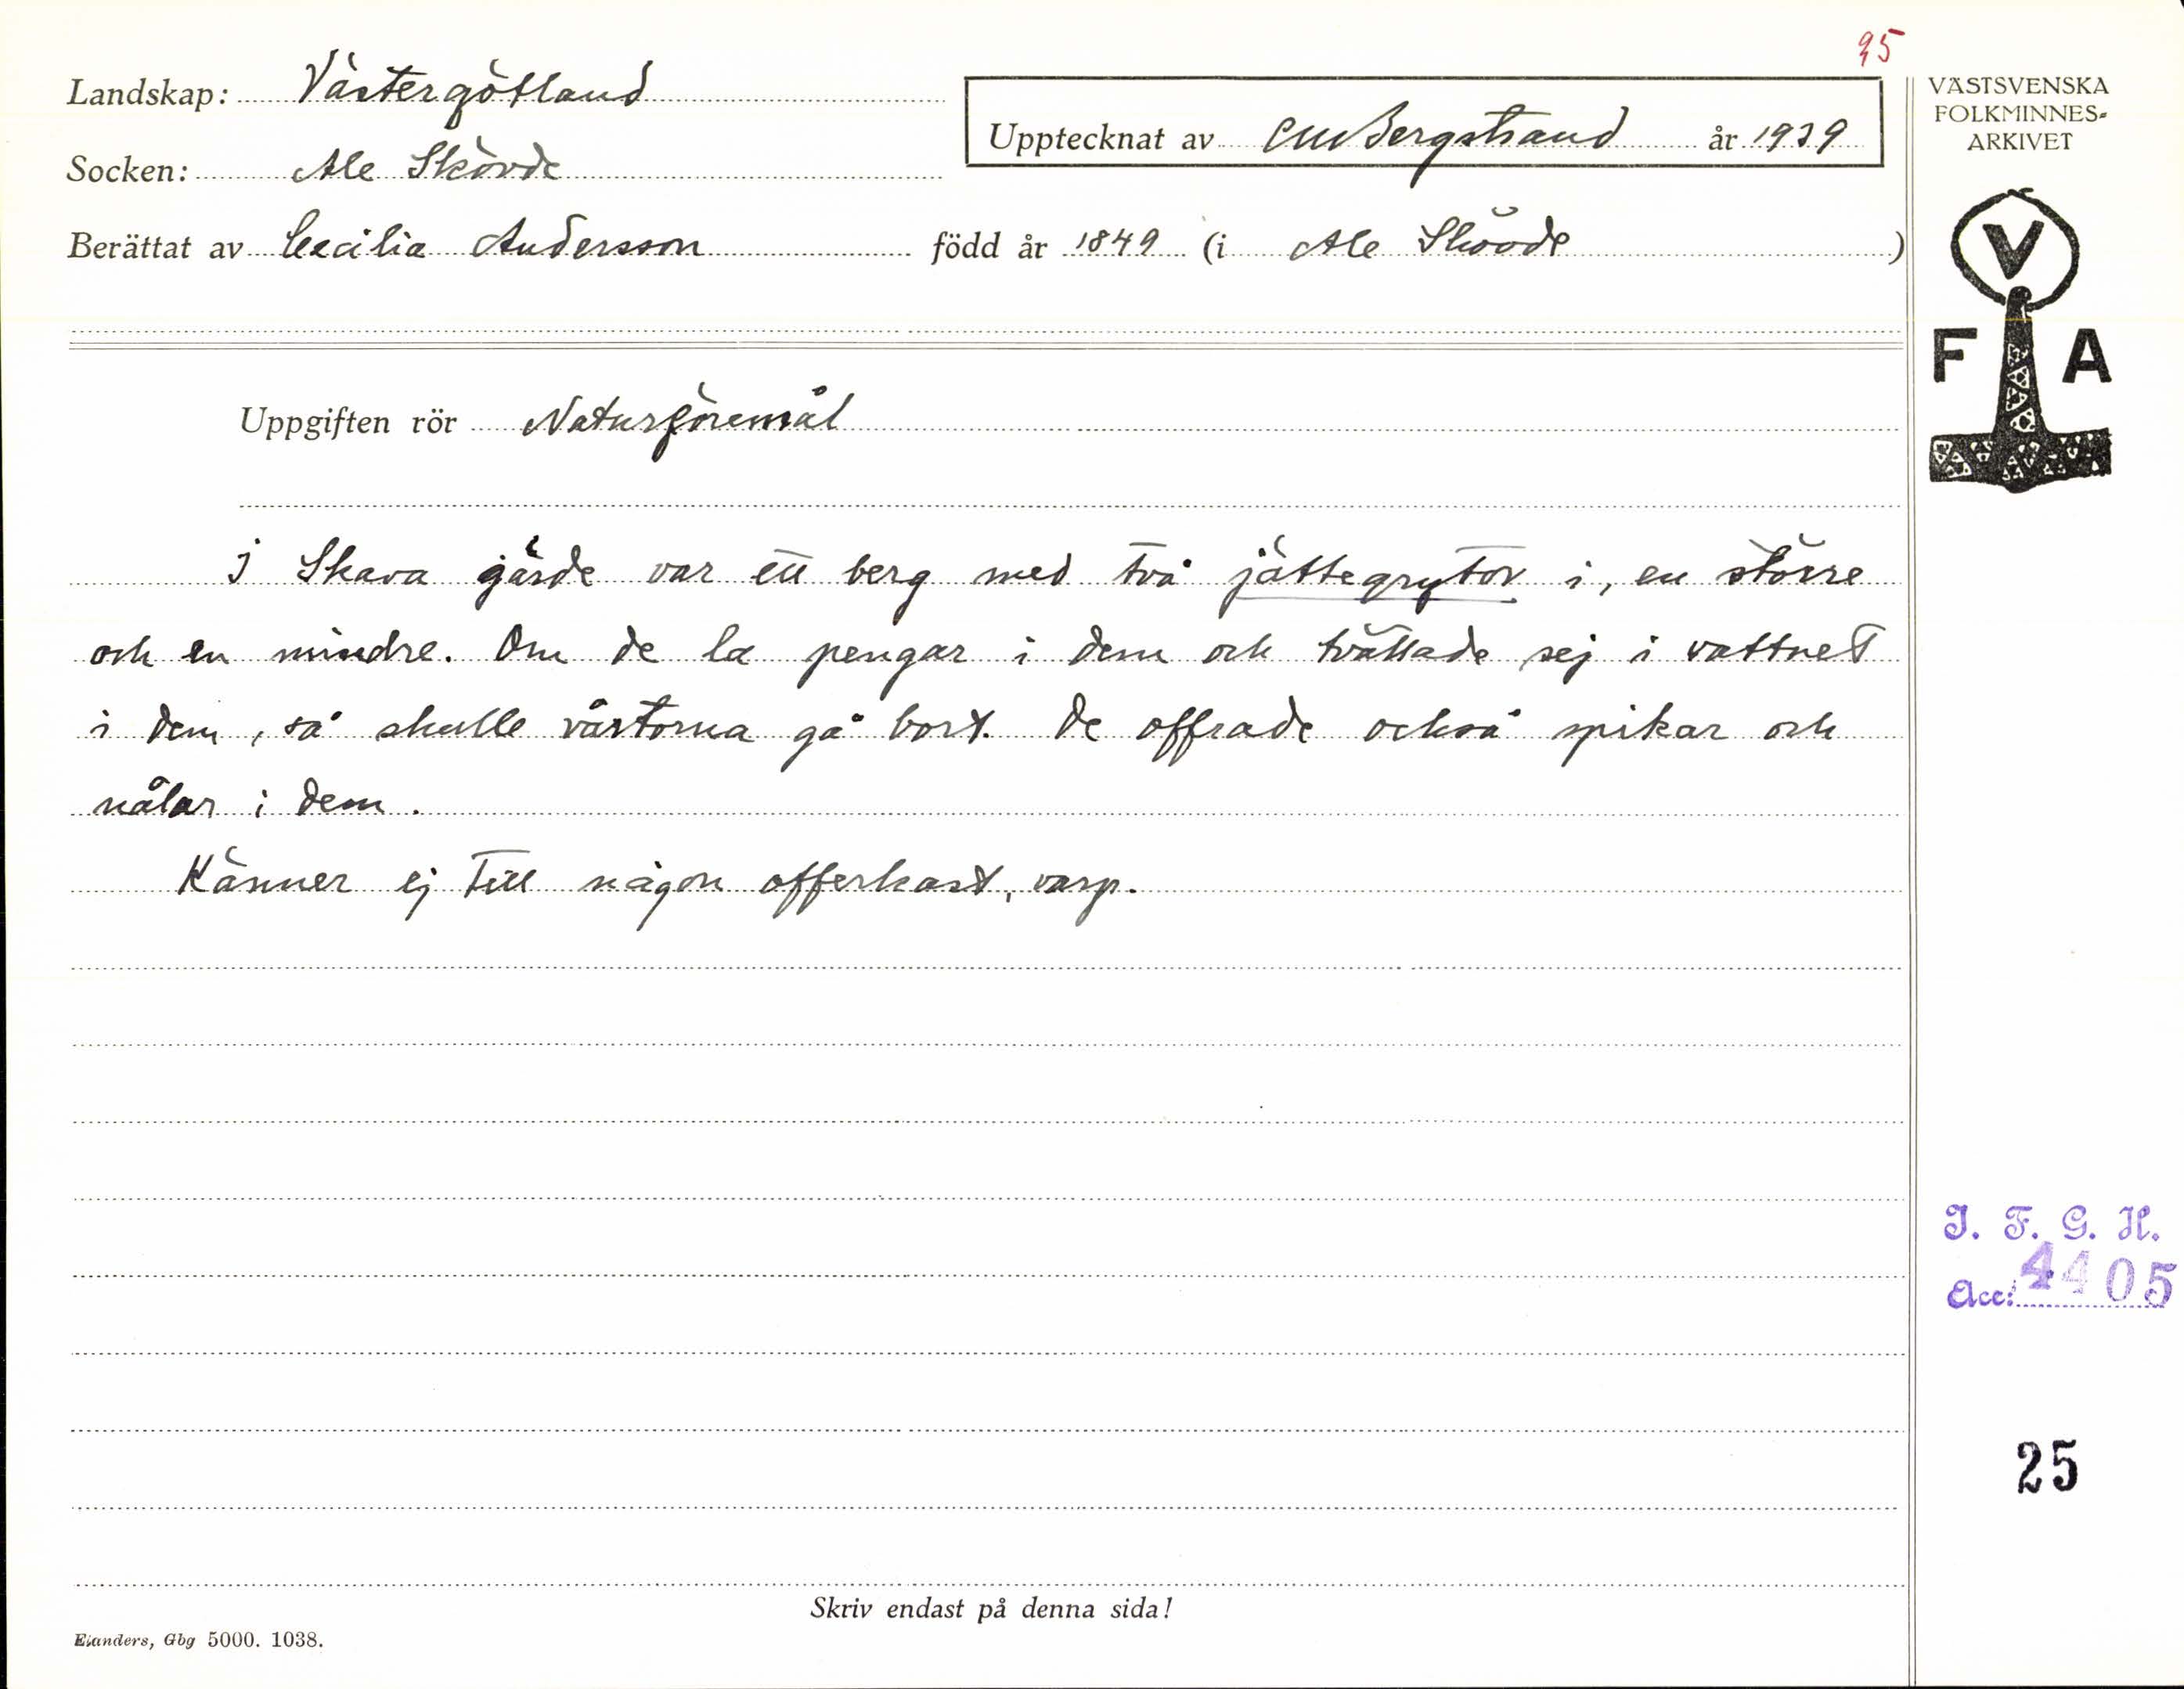 95
Landskap: Västergötland
Socken: Ale Skövde
Upptecknat av CM Bergstrand år 1939
Berättat av Cecilia Andersson född år 1849 (i Ale Skövde)
VÄSTSVENSKA
FOLKMINNES-
ARKIVET
V
F A
Uppgiften rör Naturföremål
I Skava gärde var ett berg med två jättegrytor i, en större
och en mindre. Om de la pengar i dem och tvättade sej i vattnet
i dem, så skulle vårtorna gå bort. De offrade också spikar och
nålar i dem.
Känner ej till någon offerkast, varp.
I. F. G. H.
Acc: 4405
25
Skriv endast på denna sida!
Elanders, Gbg 5000. 1038.